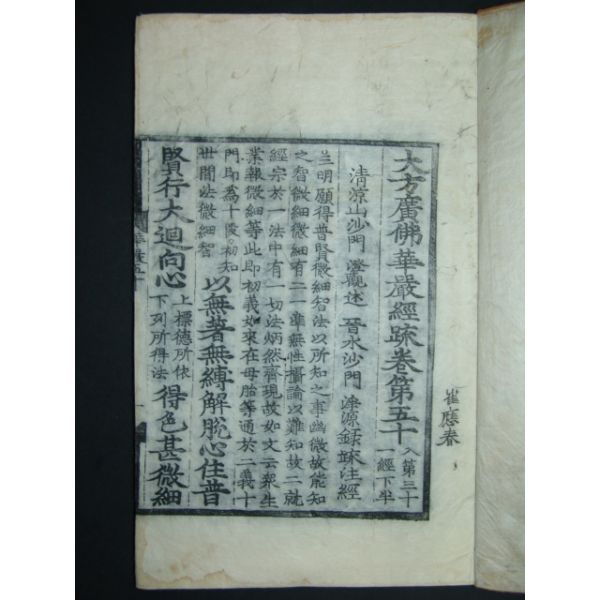 大方廣佛華嚴經疏卷第五十 入第三十
經下半
清涼山沙門 澄觀述 晉水沙門 淨源錄疏注經
三明願得普賢微細智法以所知之事幽微故能知
之智微細微細有二一準無性攝論以難知故二就
經宗於一法中有一切法炳然齊現故如文云衆生
業報微細等此即初義如來在母胎等通於二義十
門即爲十段。初知
世間法微細智
以無著無縛解脫心住普
賢行大迴向心
上標德所依
下列所得法
得色甚微細
崔應春